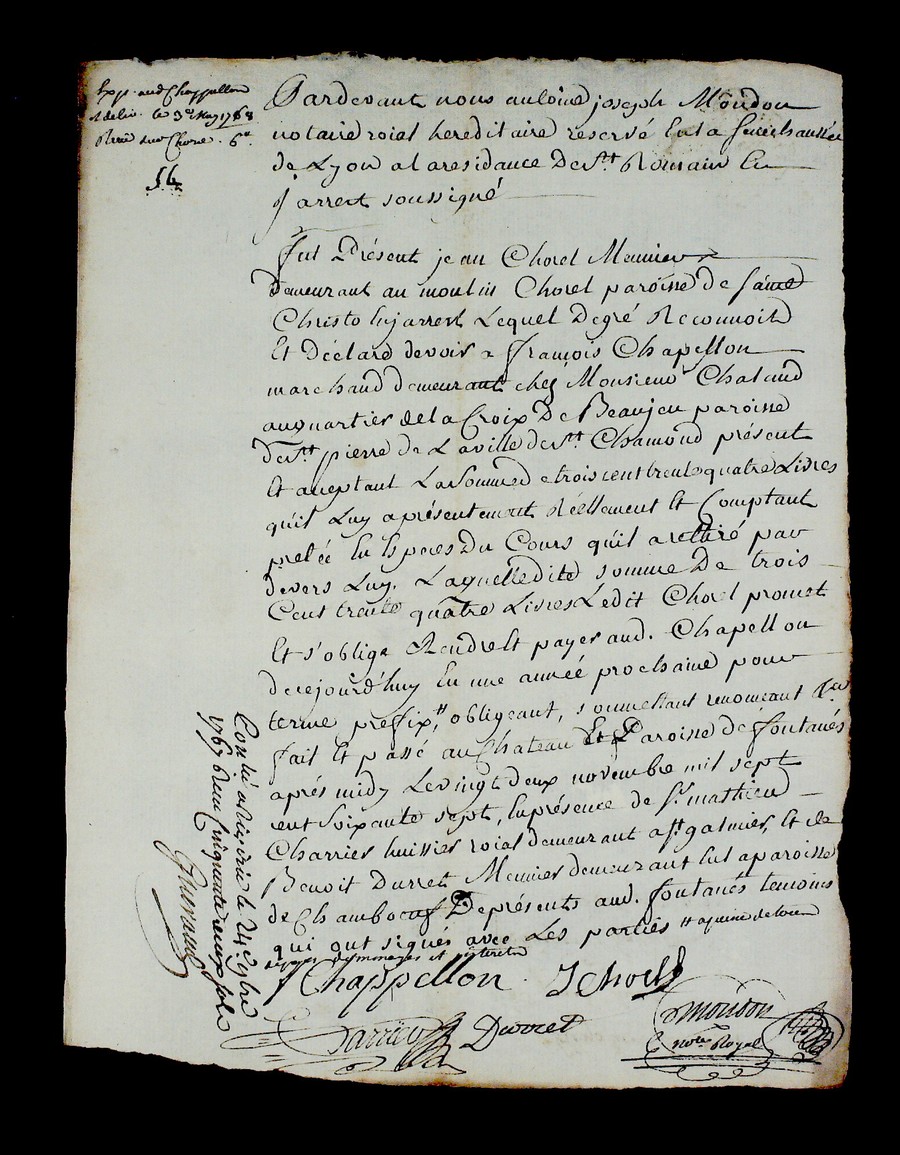 Exp. aud Chappellon
délivr. le 3e May 1768
6s.
Pardevant nous antoine joseph Moudon
notaire roial hereditaire reservé En la Senechaussée
de Lyon a la residance de st Romain En
Jarrest soussigné
fut Présent jean Chorel Meunier
demeurant au moulin Chorel paroisse de saint
Christo En jarrest Lequel Degré Reconnoit
Et Déclare devoir a françois Chapellon
marchand demeurant chez Monsieur Chaland
au quartier de la Croix De Beaujeu paroisse
de st pierre de La ville de st Chamond présent
Et aceptant La Somme de trois cent trente quatre Livres
qu'il Luy a présentement Réellement Et Comptant
pretée En Espèces Du Cours qu'il a rettiré par
devers Luy. Laquelle dite somme De trois
Cens trente quatre Livres Ledit Chorel promet
Et s'oblige Rendre Et payer aud. Chapellon
de cejourd'huy En une année prochaine pour
terme prefix, # obligeant, soumettant renonceant &ca
fait Et passé au Chateau Et Paroisse de fontanés
aprés midy Le vingt deux novembre mil sept
cent Soixante sept, En présence de sr. mathieu
Charrier huissier roial demeurant a st galmier, Et de
Benoit Durret Meunier demeurant En la paroisse
de Chambœuf De présents aud. fontanés temoins
qui ont signés avec Les parties # a peine de tous
depens dommages et interets
Chappellon J Chorel
Charrier Durret
Moudon
notre Royal
Con lé a St le 24 9bre
1767 Reçu cinquante deux sols